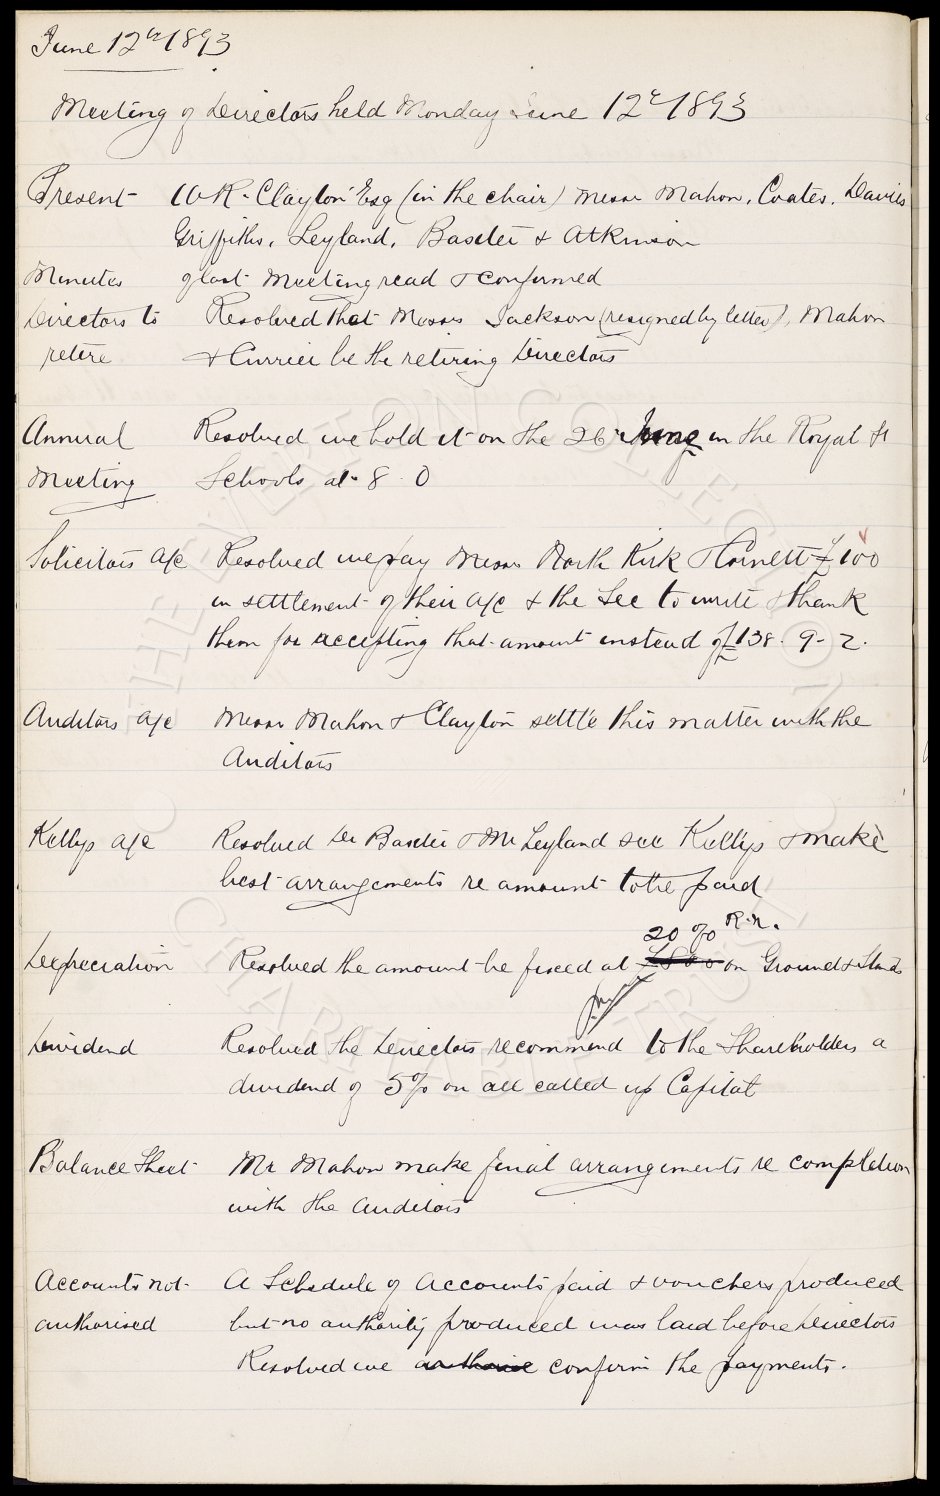 June 12th 1893
Meeting of Directors held Monday June 12th 1893
Present W R. Clayton Esq (in the chair) Messrs Mahon, Coates, Davies
Griffiths, Leyland, Baxter & Atkinson
Minutes of last Meeting read & confirmed
Directors to Resolved that Messrs Jackson (resigned by letter), Mahon
retire & Currier be the retiring Directors
Annual Resolved we hold it on the 26th June in the Royal St
Meeting Schools at 8. 0
Solicitors a/c Resolved we pay Messrs North Kirk & Cornett £100
in settlement of their a/c & the Sec to write & thank
them for accepting that amount instead of £138. 9. 2.
Auditors a/c Messrs Mahon & Clayton settle this matter with the
Auditors
Kellys a/c Resolved Dr Baxter & Mr Leyland see Kellys & make
best arrangements re amount to be paid
20 % R.n.
Depreciation Resolved the amount be fixed at £800 on Ground & Stands
Dividend Resolved the Directors recommend to the Shareholders a
dividend of 5% on all called up Capital
Balance Sheet Mr Mahon make final arrangements re completion
with the Auditors
Accounts not A Schedule of Accounts paid & vouchers produced
authorised but no authority produced was laid before Directors
Resolved we authorise confirm the payments.
THE EVERTON COLLECTION
CHARITABLE TRUST